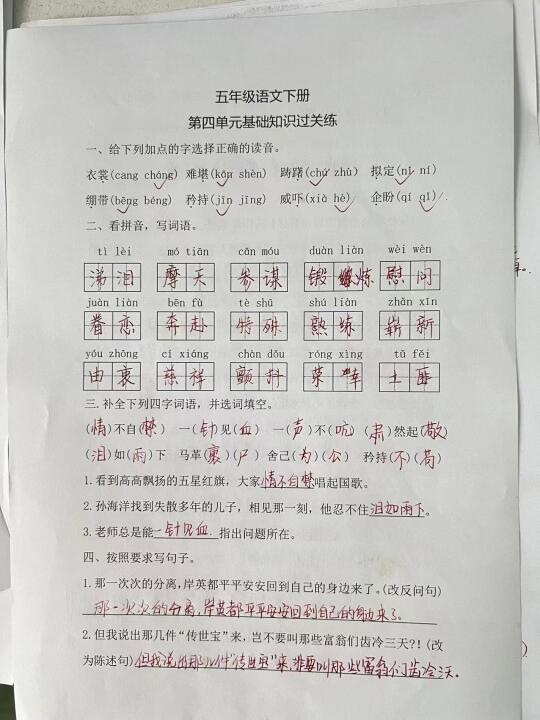 五年级语文下册
第四单元基础知识过关练
一、给下列加点的字选择正确的读音。
衣裳(cang cháng) 难堪(kān shèn) 踌躇(chú zhù) 拟定(nǐ ní)
绷带(bēng béng) 矜持(jīn jīng) 威吓(xià hè) 企盼(qí qǐ)
二、看拼音，写词语。
tì lèi mó tiān cān móu duàn liàn wèi wèn
涕泪 摩天 参谋 锻炼 慰问
juàn liàn bēn fù tè shū shú liàn zhǎn xīn
眷恋 奔赴 特殊 熟练 崭新
yóu zhōng cí xiáng chàn dǒu róng xìng tǔ fěi
由衷 慈祥 颤抖 荣幸 土匪
三.补全下列四字词语，并选词填空。
(情)不自(禁) 一(针)见(血) 一(声)不(吭) (肃)然起(敬)
(泪)如(雨)下 马革(裹)(尸) 舍己(为)(公) 矜持(不)(苟)
1.看到高高飘扬的五星红旗，大家情不自禁唱起国歌。
2.孙海洋找到失散多年的儿子，相见那一刻，他忍不住泪如雨下。
3.老师总是能一针见血指出问题所在。
四、按照要求写句子。
1.那一次次的分离，岸英都平平安安回到自己的身边来了。(改反问句)
那一次次的分离，岸英都平平安安回到自己的身边来了。
2.但我说出那几件“传世宝”来，岂不要叫那些富翁们齿冷三天?!(改
为陈述句)但我说出那几件“传世宝”来，要叫那些富翁们齿冷三天。